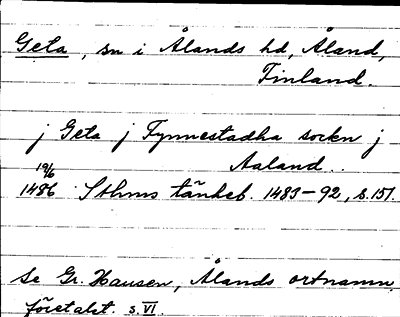 Geta, sn i Ålands hd, Åland,
Finland.
j Geta j Fynnestadha sockn j
Aaland..
19/6
1486 Sthms tänkeb. 1483-92, s. 151.
Se Gr. Hausen, Ålands ortnamn,
företalet. s. VI.